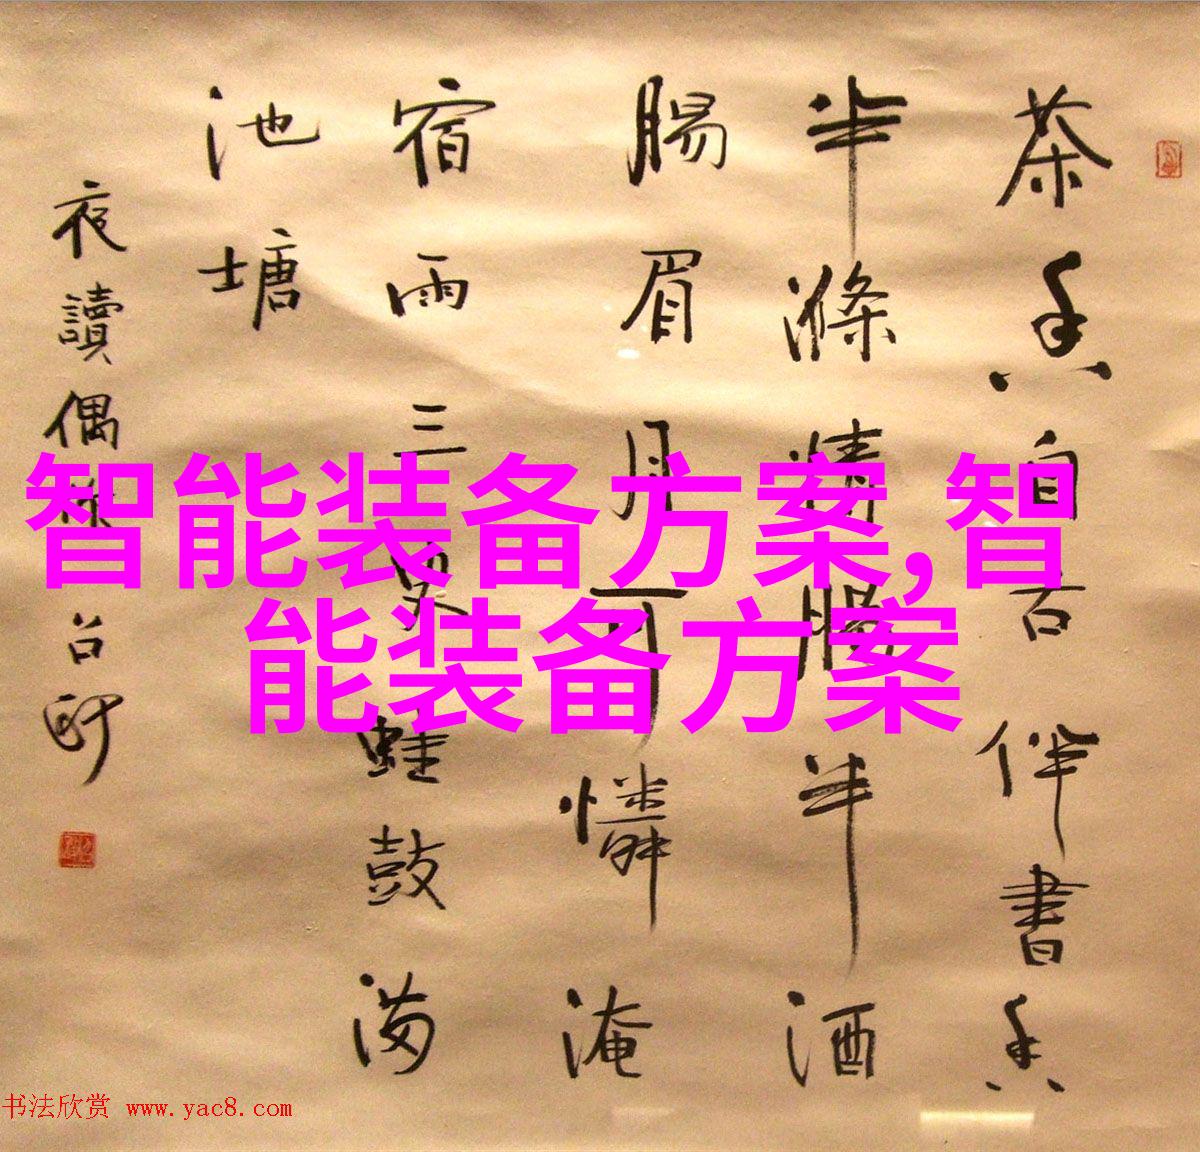 茶香自古伴書香
半滌情腸半酒
腸眉月可憐淹
宿雨三更蛙鼓满
池塘
夜讀偶
台邱
智能装备方案,智
能装备方案
书法欣赏 www.yac8.com